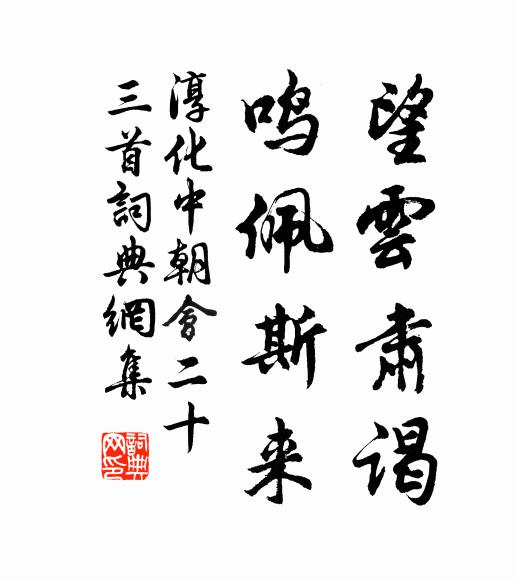 望雲肅谒
鸣佩斯来
淳化中朝會二十
三首詞典網集
詞典网印